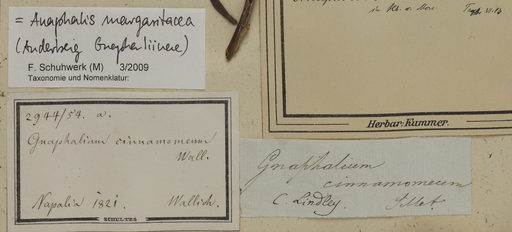 = Anaphalis margaritacea
(Anderberg Gnaphaliinae)
F. Schuhwerk (M) 3/2009
Taxonomie und Nomenklatur:
Herbar. Kummer.
2944/54. a.
Gnaphalium cinnamomeum
Wall.
Napalia 1821. Wallich.
SCHULTES
Gnaphalium
cinnamomeum
C. Lindley.